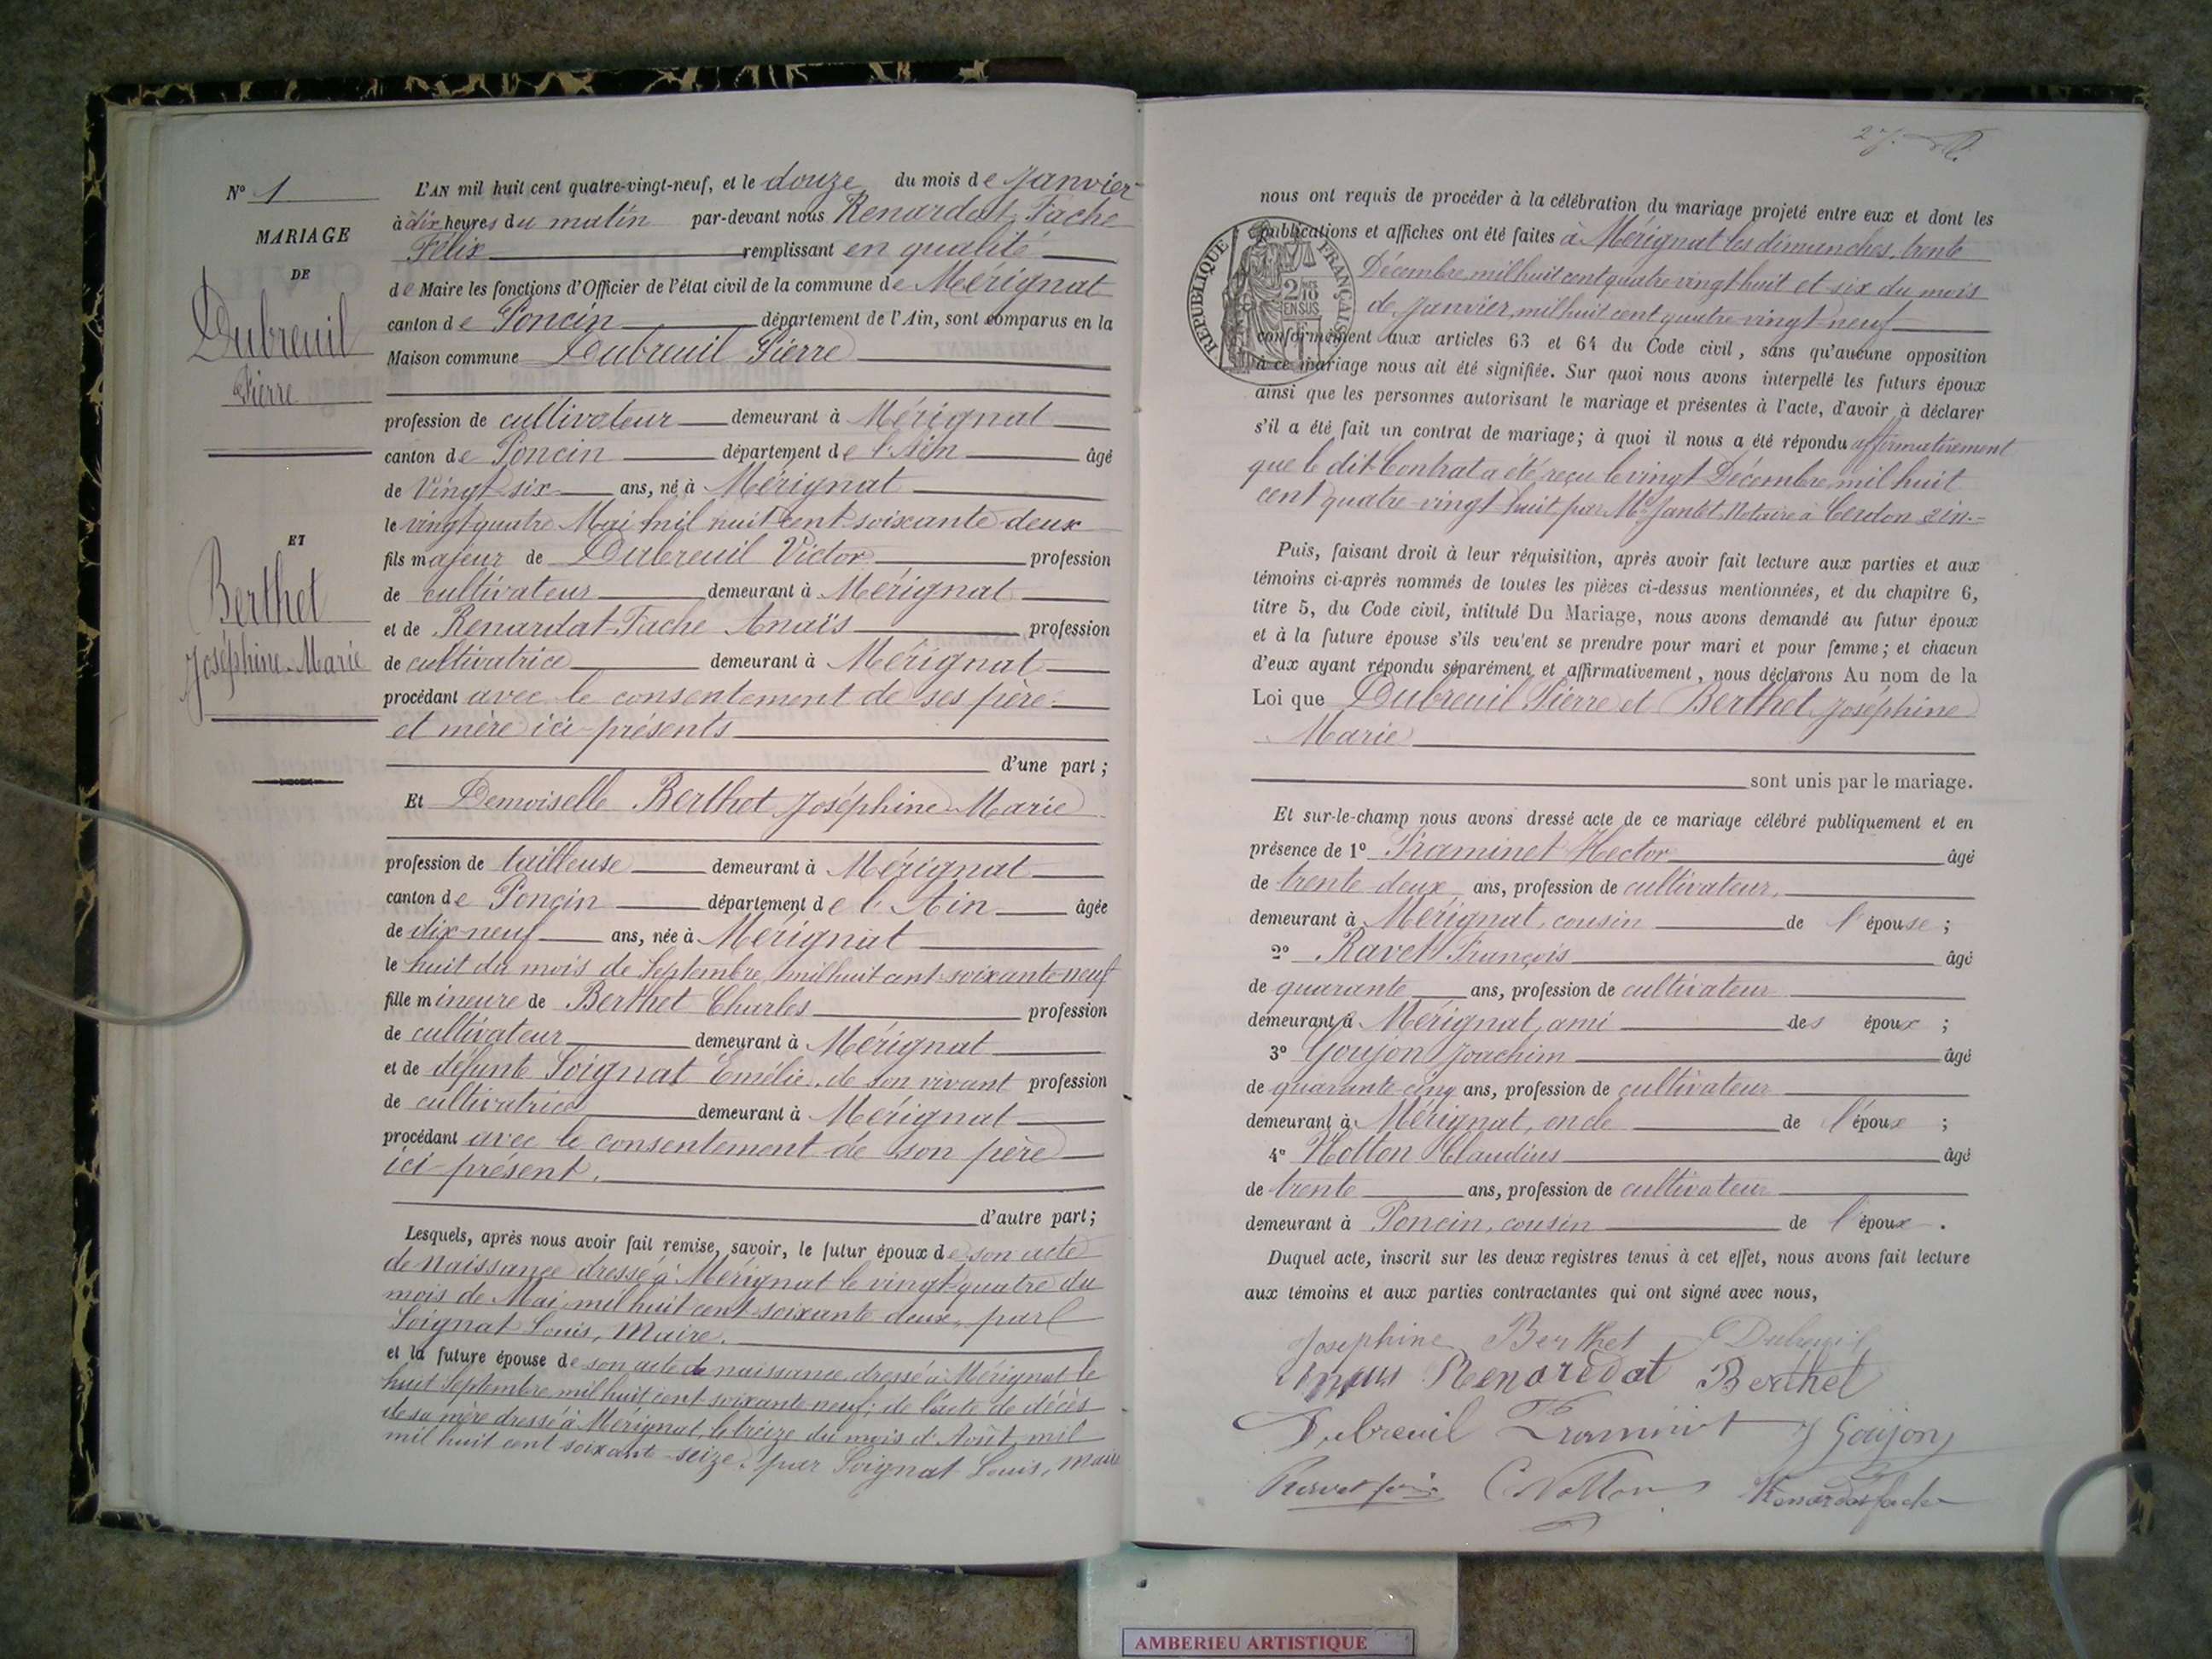 N° 1
MARIAGE
DE
Dubreuil
Pierre
ET
Berthet
Joséphine-Marie
L'AN mil huit cent quatre-vingt-neuf, et le douze du mois de Janvier
à dix heures du matin par-devant nous Renardat Fache
Félix remplissant en qualité
de Maire les fonctions d'Officier de l'état civil de la commune de Mérignat
canton de Poncin département de l'Ain, sont comparus en la
Maison commune Dubreuil Pierre
profession de cultivateur demeurant à Mérignat
canton de Poncin département de l'Ain âgé
de vingt-six ans, né à Mérignat
le vingt quatre Mai mil huit cent soixante deux
fils majeur de Dubreuil Victor profession
de cultivateur demeurant à Mérignat
et de Renardat-Fache Anaïs profession
de cultivatrice demeurant à Mérignat
procédant avec le consentement de ses père
et mère ici-présents
d'une part;
Et Demoiselle Berthet Joséphine-Marie
profession de tailleuse demeurant à Mérignat
canton de Poncin département de l'Ain âgée
de dix-neuf ans, née à Mérignat
le huit du mois de Septembre mil huit cent soixante-neuf
fille mineure de Berthet Charles profession
de cultivateur demeurant à Mérignat
et de défunte Soignat Emélie, de son vivant profession
de cultivatrice demeurant à Mérignat
procédant avec le consentement de son père
ici-présent.
d'autre part;
Lesquels, après nous avoir fait remise, savoir, le futur époux de son acte
de naissance dressé à Mérignat le vingt-quatre du
mois de Mai mil huit cent soixante deux, par
Soignat Louis, Maire.
et la future épouse de son acte de naissance dressé à Mérignat le
huit Septembre mil huit cent soixante-neuf; de l'acte de décès
de sa mère dressé à Mérignat, le treize du mois d'Août mil
mil huit cent soixante-seize, par Soignat Louis, Maire
27.
nous ont requis de procéder à la célébration du mariage projeté entre eux et dont les
publications et affiches ont été faites à Mérignat les dimanches, trente
Décembre mil huit cent quatre vingt huit et six du mois
de Janvier, mil huit cent quatre vingt-neuf
conformément aux articles 63 et 64 du Code civil, sans qu'aucune opposition
à ce mariage nous ait été signifiée. Sur quoi nous avons interpellé les futurs époux
ainsi que les personnes autorisant le mariage et présentes à l'acte, d'avoir à déclarer
s'il a été fait un contrat de mariage; à quoi il nous a été répondu affirmativement
que le dit Contrat a été reçu le vingt Décembre mil huit
cent quatre-vingt huit par Me Jantet Notaire à Cerdon
REPUBLIQUE FRANÇAISE
2/10
EN SUS
Puis, faisant droit à leur réquisition, après avoir fait lecture aux parties et aux
témoins ci-après nommés de toutes les pièces ci-dessus mentionnées, et du chapitre 6,
titre 5, du Code civil, intitulé Du Mariage, nous avons demandé au futur époux
et à la future épouse s'ils veulent se prendre pour mari et pour femme; et chacun
d'eux ayant répondu séparément et affirmativement, nous déclarons Au nom de la
Loi que Dubreuil Pierre et Berthet Joséphine
Marie
sont unis par le mariage.
Et sur-le-champ nous avons dressé acte de ce mariage célébré publiquement et en
présence de 1° Traminet Hector âgé
de trente-deux ans, profession de cultivateur,
demeurant à Mérignat, cousin de l'épouse;
2° Ravet François âgé
de quarante ans, profession de cultivateur
demeurant à Mérignat, ami des époux;
3° Goujon Joachim âgé
de quarante-cinq ans, profession de cultivateur
demeurant à Mérignat, oncle de l'époux;
4° Notton Claudius âgé
de trente ans, profession de cultivateur
demeurant à Poncin, cousin de l'époux.
Duquel acte, inscrit sur les deux registres tenus à cet effet, nous avons fait lecture
aux témoins et aux parties contractantes qui ont signé avec nous,
Josephine Berthet P Dubreuil
Anaïs Renardat Berthet
Dubreuil Traminet J Goujon
Ravet C Notton Renardat fache
AMBERIEU ARTISTIQUE